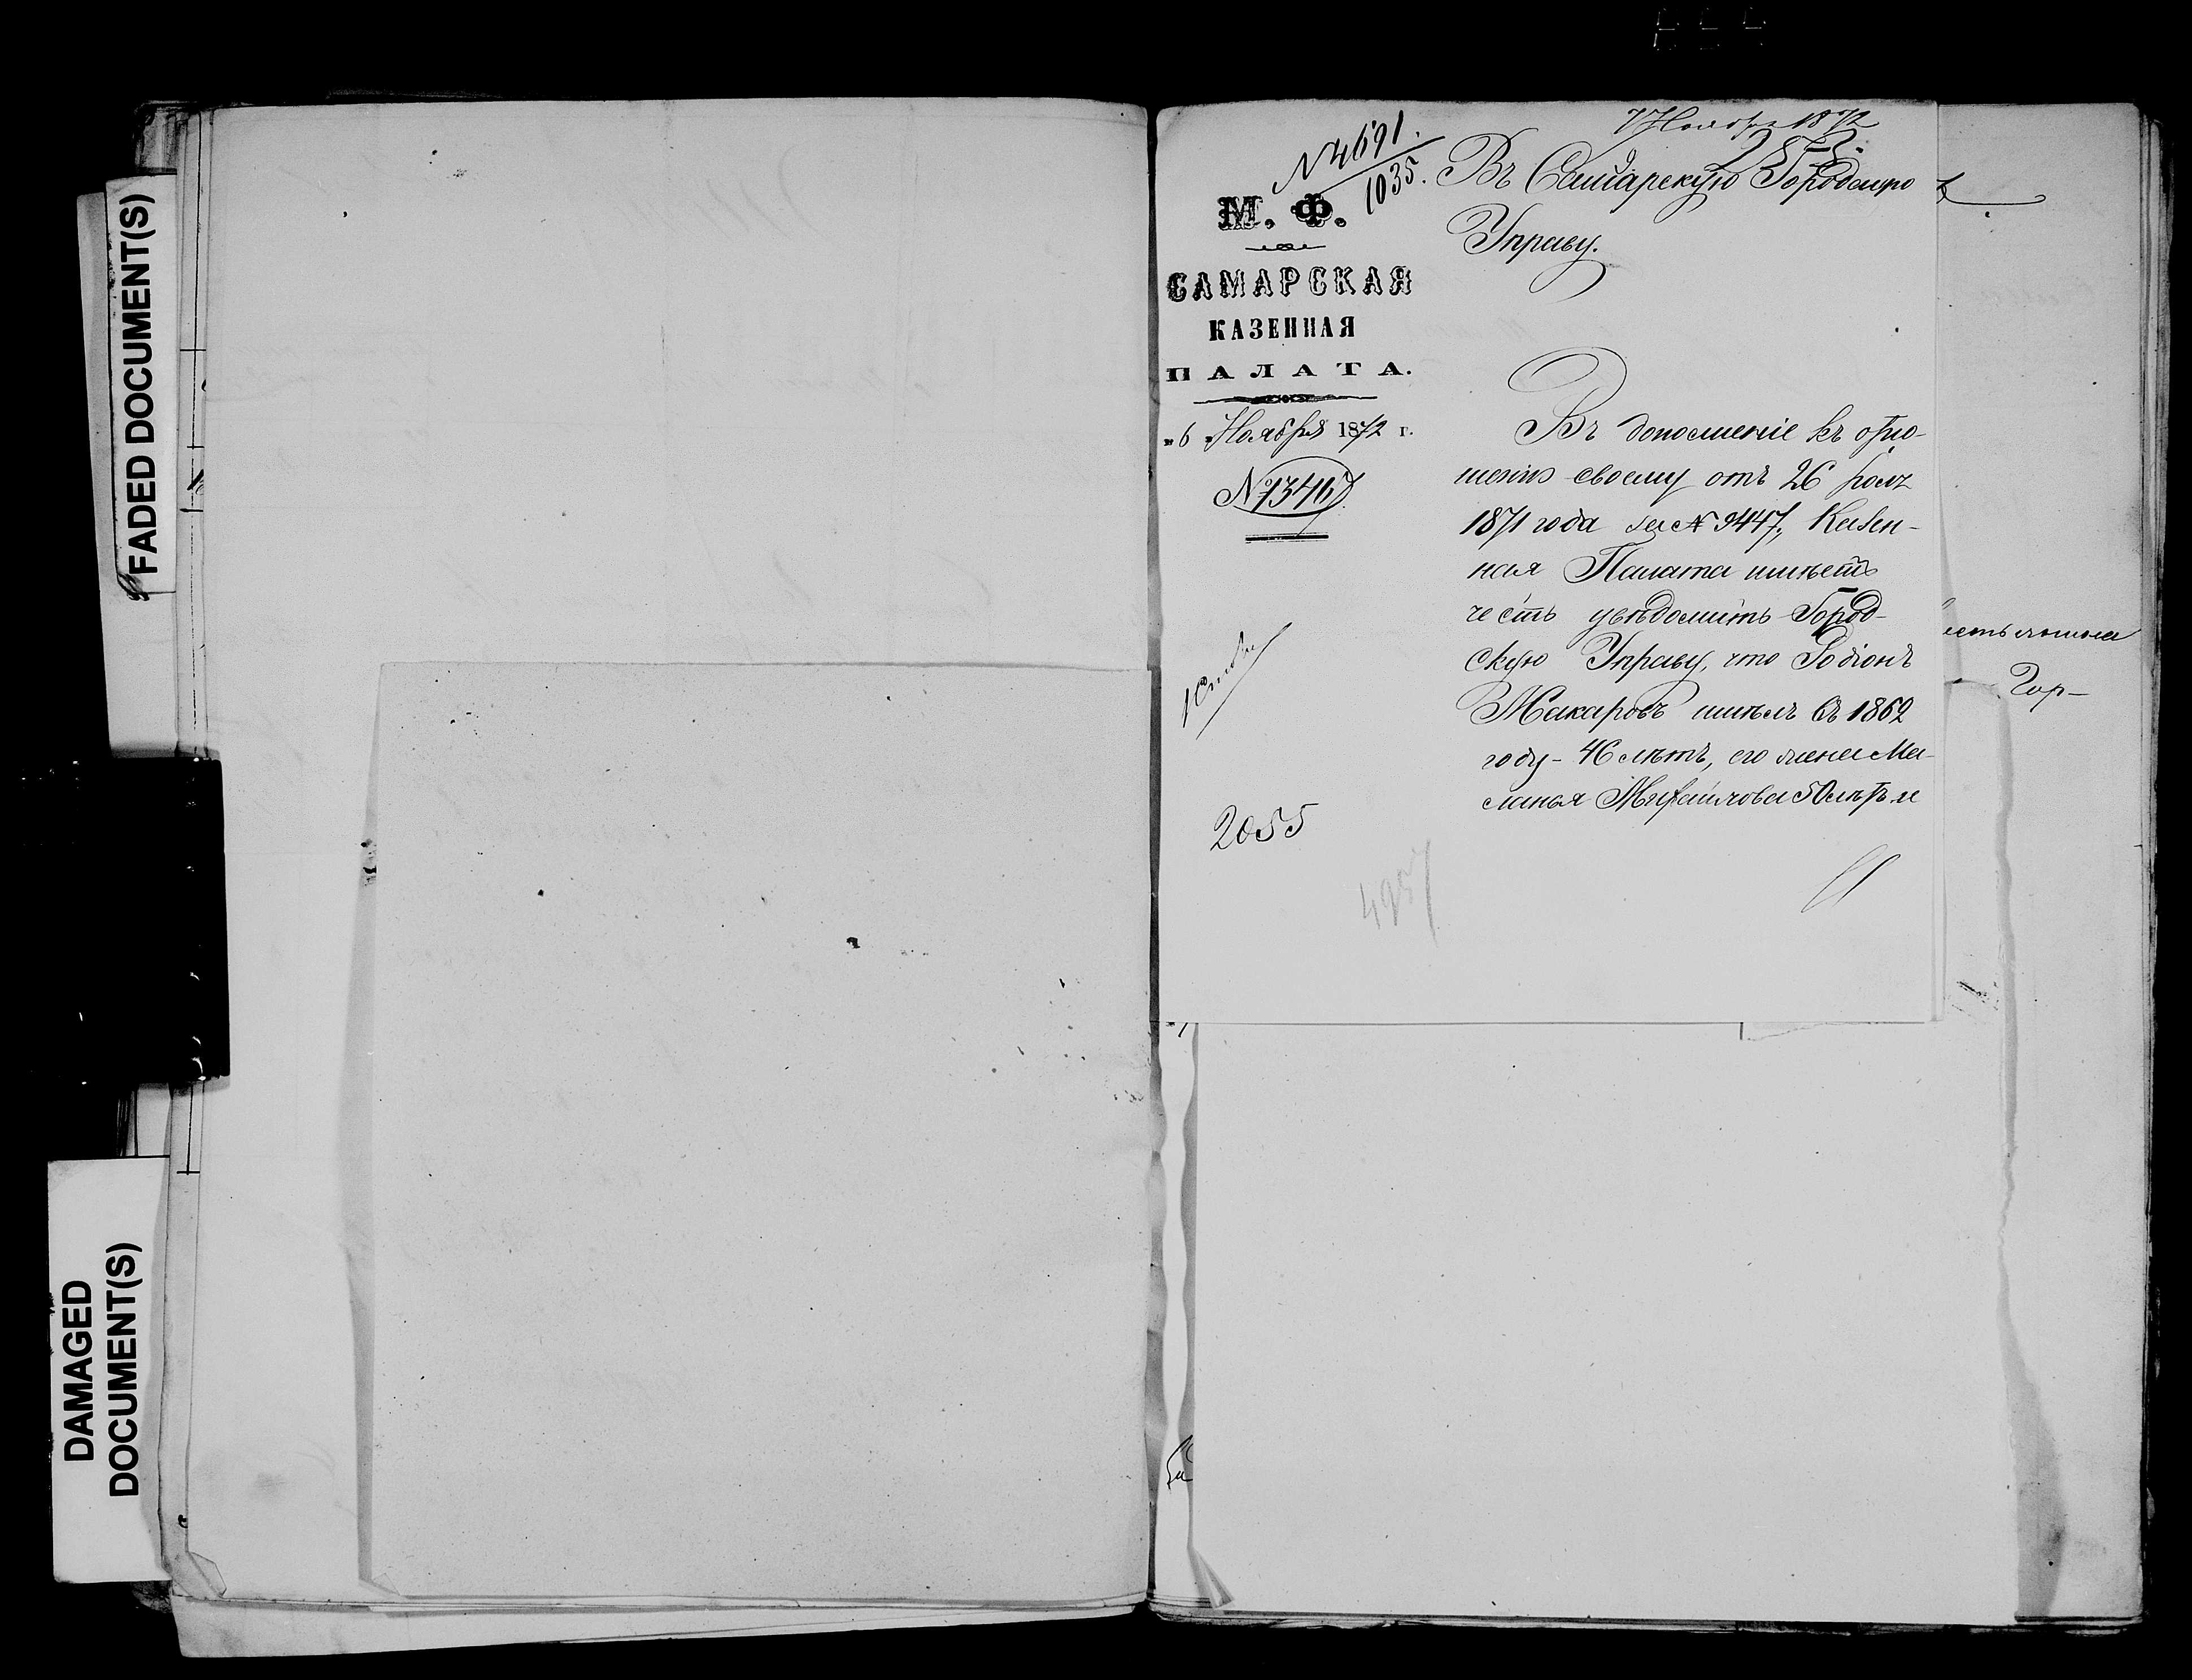 FADED DOCUMENT(S)
DAMAGED
DOCUMENT(S)
7 Ноября 1872
253.
№ 4691.
1035.
М. Ф.
САМАРСКАЯ
КАЗЕННАЯ
ПАЛАТА.
„6„ Ноября 1872 г.
2055
4957
Въ Самарскую Городскую
Управу.
Въ дополненіе къ отно-
шенію своему отъ 26 Іюля
1871 года за № 9447, Казен-
ная Палата имѣетъ
честь увѣдомить Город-
скую Управу, что Родіонъ
Макаровъ имѣлъ въ 1862
году - 46 лѣтъ, его жена Ма-
ланья Михайлова 50 лѣтъ и
Гор-